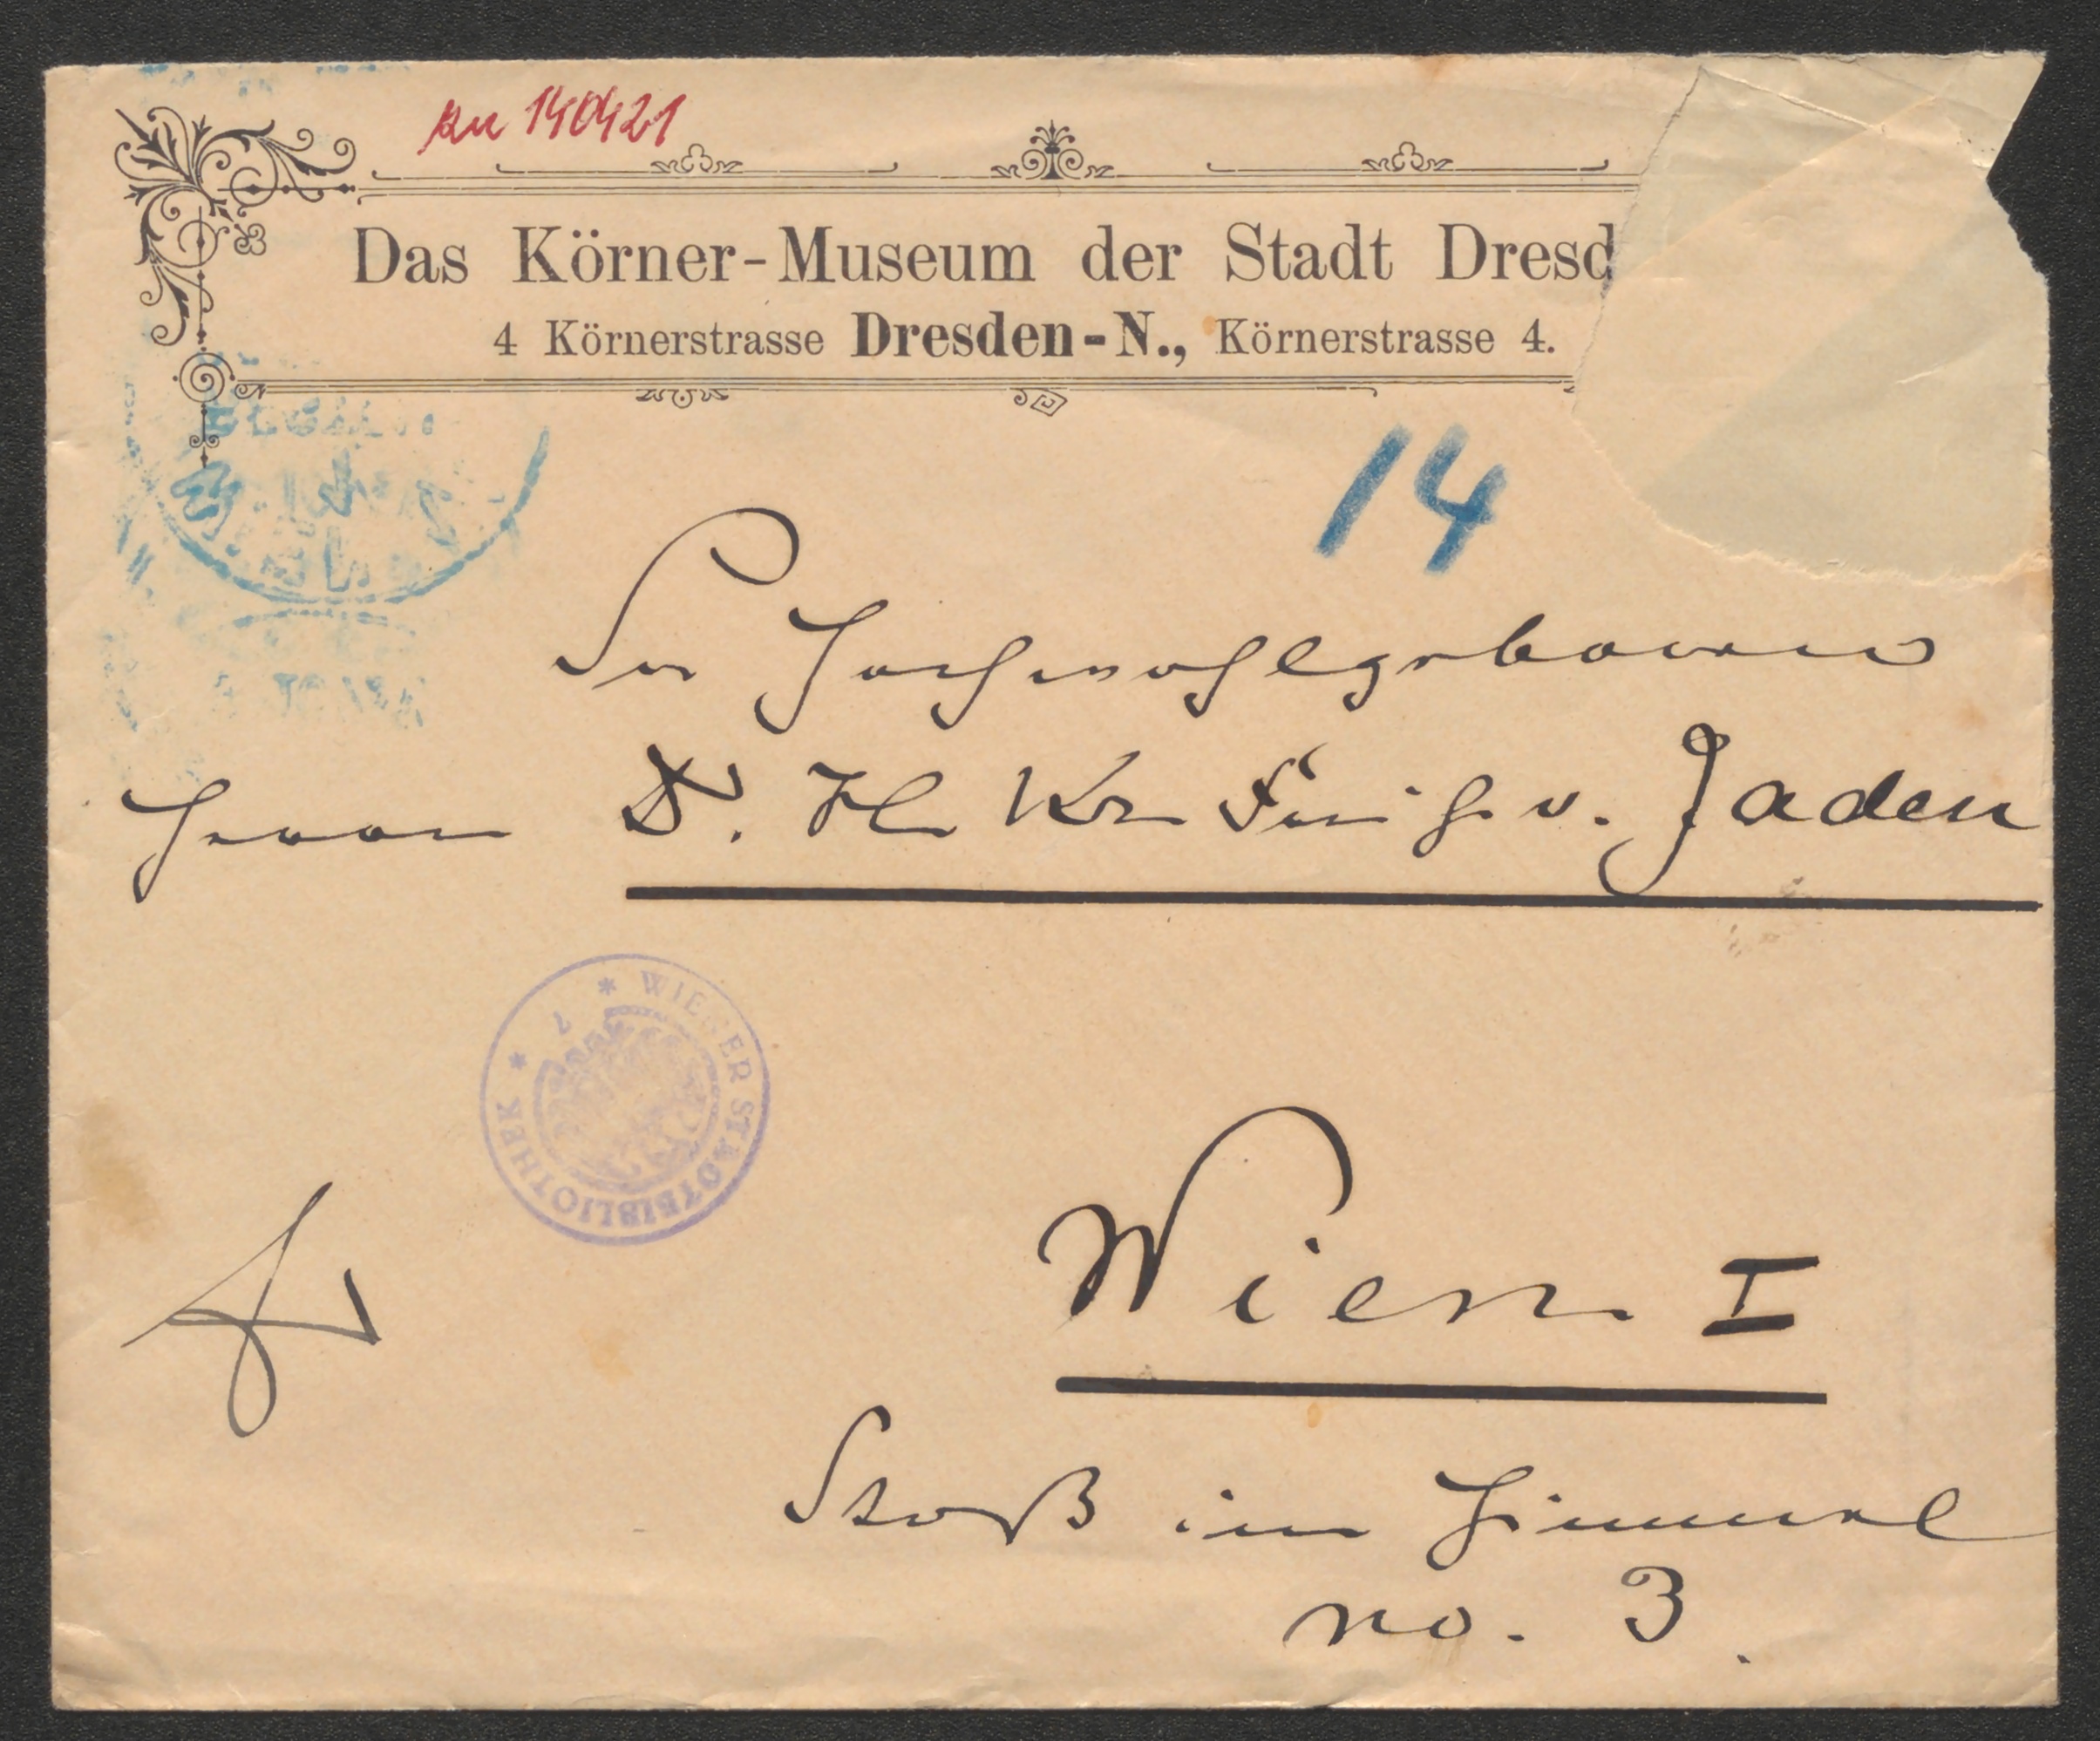 zu 140421
Das Körner-Museum der Stadt Dresd
4 Körnerstrasse Dresden-N., Körnerstrasse 4.
14
Sr Hochwohlgeboren
Herrn Dr. H. K. Freih. v. Jaden
* WIENER STADTBIBLIOTHEK *
Wien I
Stoß im Himmel
no. 3.